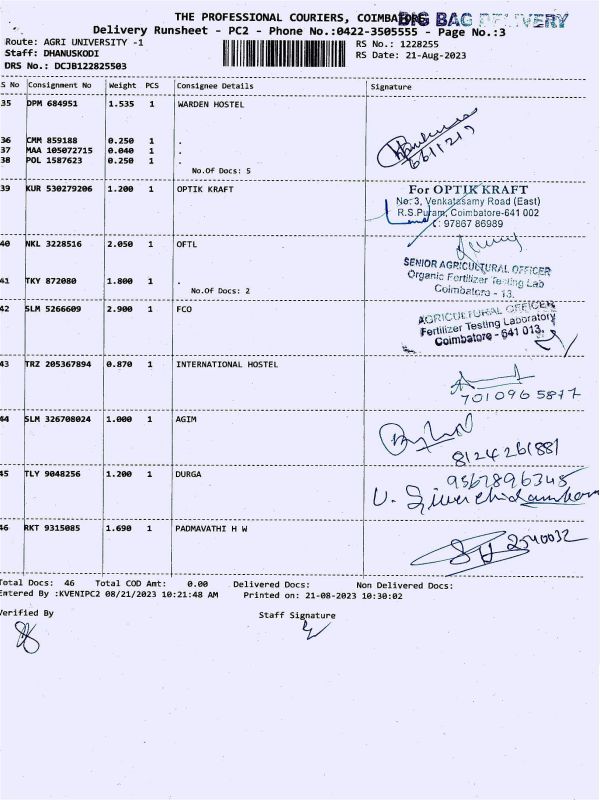 THE PROFESSIONAL COURIERS, COIMBATORE
BIG BAG DELIVERY
Delivery Runsheet - PC2 - Phone No.:0422-3505555 - Page No.:3
Route: AGRI UNIVERSITY -1
RS No.: 1228255
Staff: DHANUSKODI
RS Date: 21-Aug-2023
DRS No.: DCJB122825503
S No Consignment No Weight PCS Consignee Details Signature
35 DPM 684951 1.535 1 WARDEN HOSTEL
36 CMM 859188 0.250 1 .
37 MAA 105072715 0.040 1 .
38 POL 1587623 0.250 1 .
No.Of Docs: 5
6611219
39 KUR 530279206 1.200 1 OPTIK KRAFT
For OPTIK KRAFT
No: 3, Venkatasamy Road (East)
R.S.Puram, Coimbatore-641 002
: 97867 86989
40 NKL 3228516 2.050 1 OFTL
SENIOR AGRICULTURAL OFFICER
Organic Fertilizer Testing Lab
Coimbatore - 13.
41 TKY 872080 1.800 1 .
No.Of Docs: 2
42 SLM 5266609 2.900 1 FCO
AGRICULTURAL OFFICER
Fertilizer Testing Laboratory
Coimbatore - 641 013.
43 TRZ 205367894 0.870 1 INTERNATIONAL HOSTEL
7010965877
44 SLM 326708024 1.000 1 AGIM
8124261881
45 TLY 9048256 1.200 1 DURGA
9567896345
46 RKT 9315085 1.690 1 PADMAVATHI H W
2540032
Total Docs: 46 Total COD Amt: 0.00 Delivered Docs: Non Delivered Docs:
Entered By :KVENIPC2 08/21/2023 10:21:48 AM Printed on: 21-08-2023 10:30:02
Verified By Staff Signature